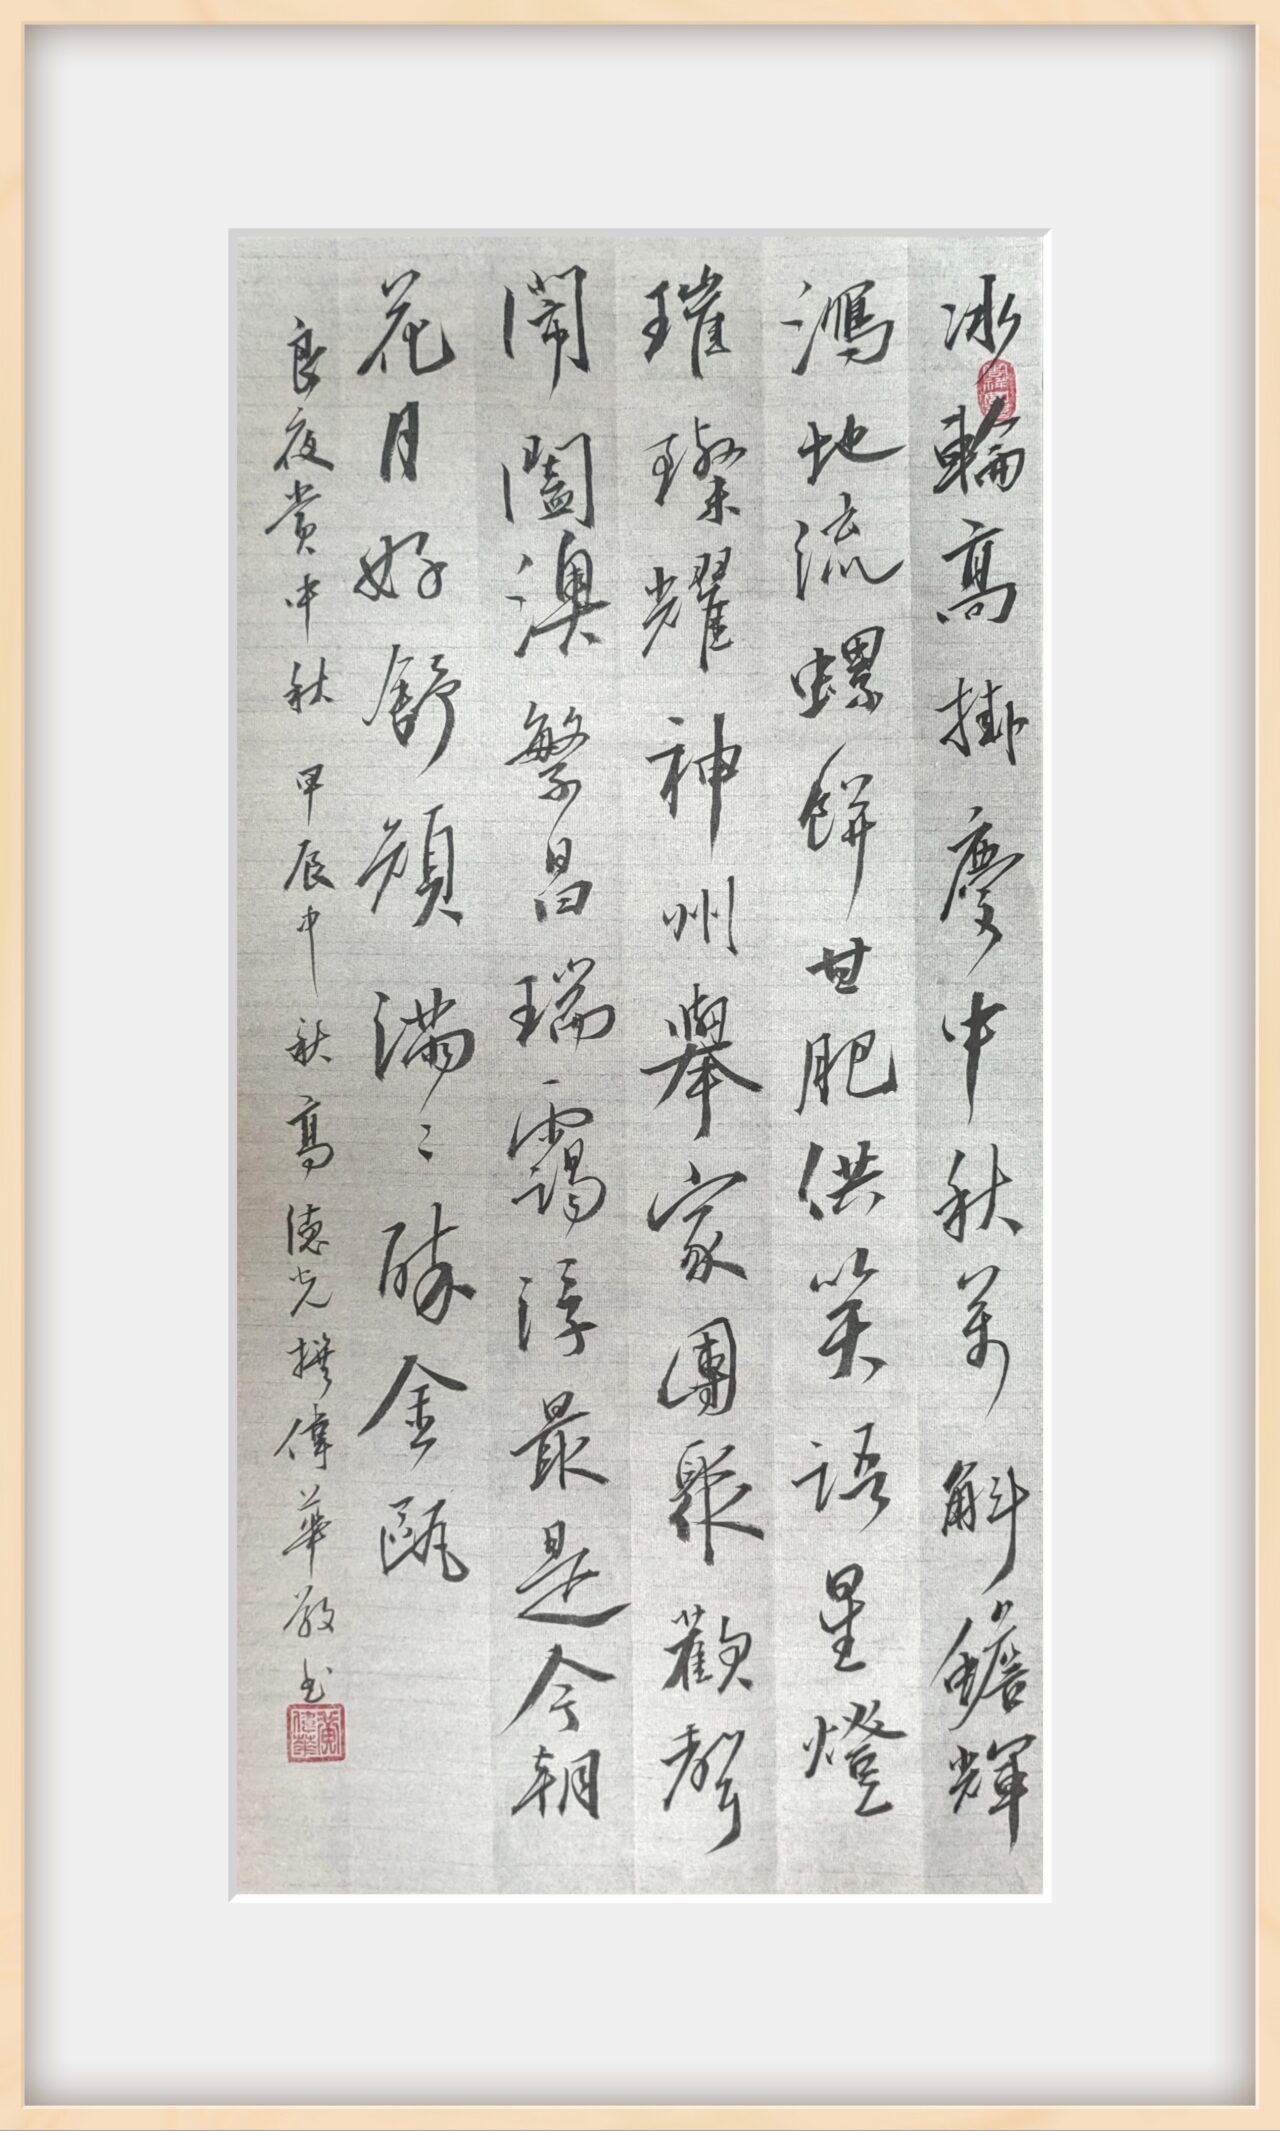 冰輪高掛慶中秋萬斛蟾輝
瀉地流螺餅甘肥供笑語星燈
璀璨耀神州舉家團聚歡聲
鬧闔澳繁昌瑞靄浮最是今朝
花月好舒顏滿〻醉金甌
良夜賞中秋 甲辰中秋高德光撰偉華敬书